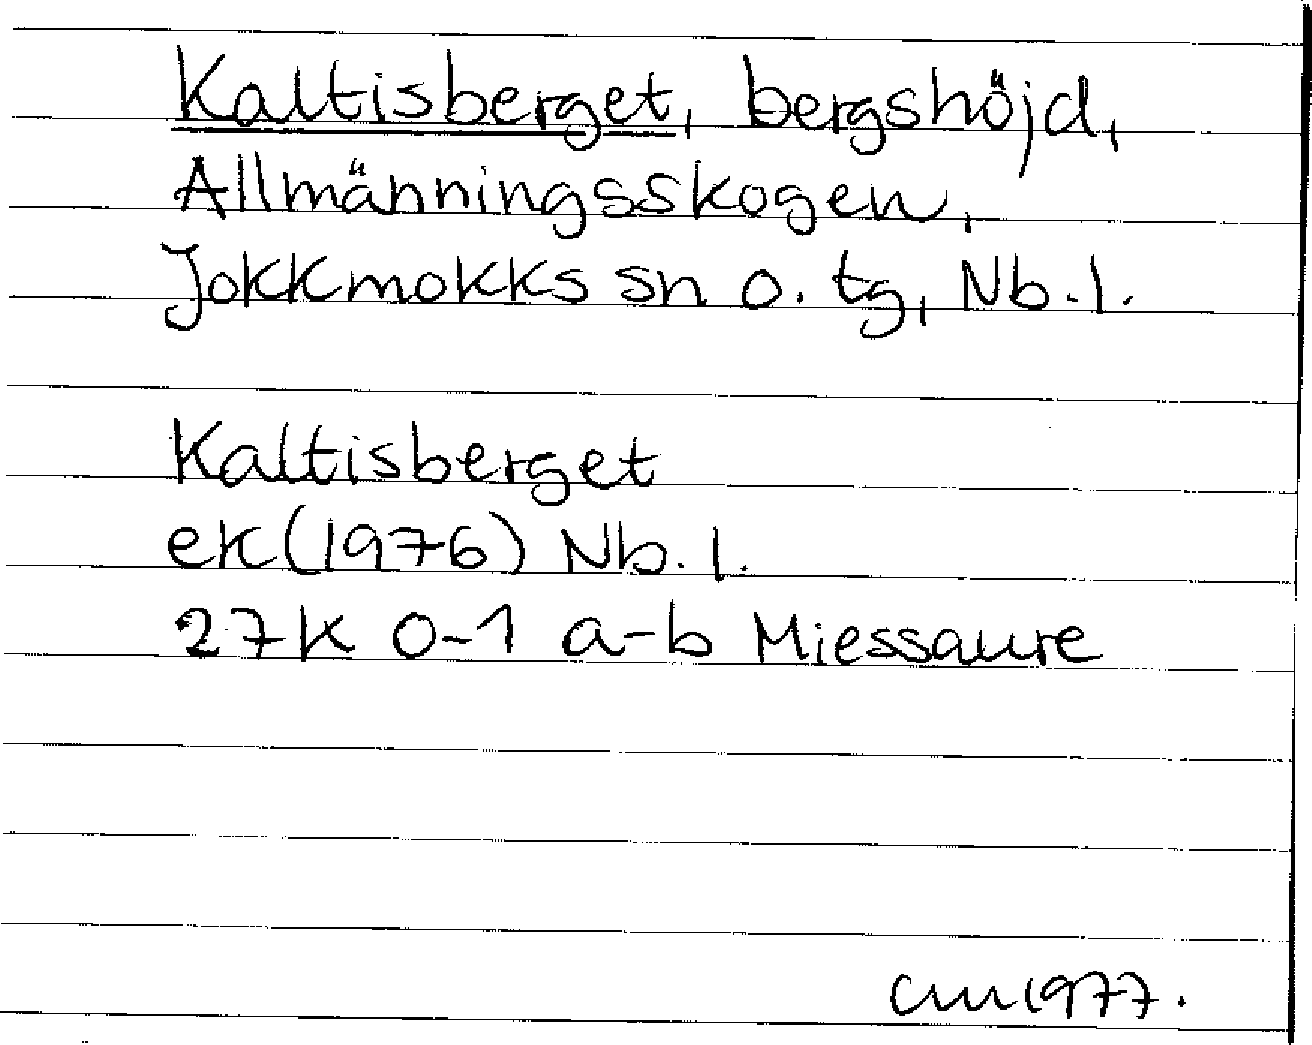 Kaltisberget, bergshöjd,
Allmänningsskogen,
Jokkmokks sn o. tg, Nb.l.
Kaltisberget
ek (1976) Nb. l.
27K 0-1 a-b Miessaure
cm 1977.